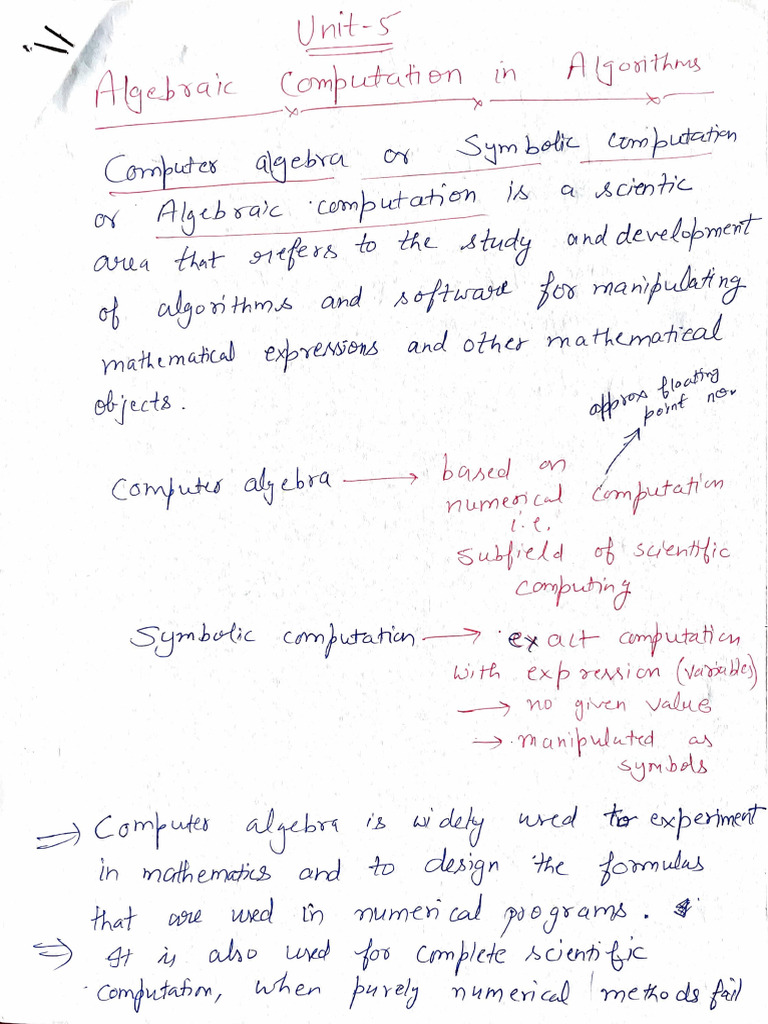 Unit-5
Algebraic Computation in Algorithms
Computer algebra or Symbolic computation
or Algebraic computation is a scientic
area that refers to the study and development
of algorithms and software for manipulating
mathematical expressions and other mathematical
objects.
approx floating
point no.
Computer algebra → based on
numerical computation
i.e.
subfield of scientific
computing
Symbolic computation → exact computation
with expression (variables)
→ no given value
→ manipulated as
symbols
⇒ Computer algebra is widely used to experiment
in mathematics and to design the formulas
that are used in numerical programs.
⇒ It is also used for complete scientific
computation, when purely numerical methods fail